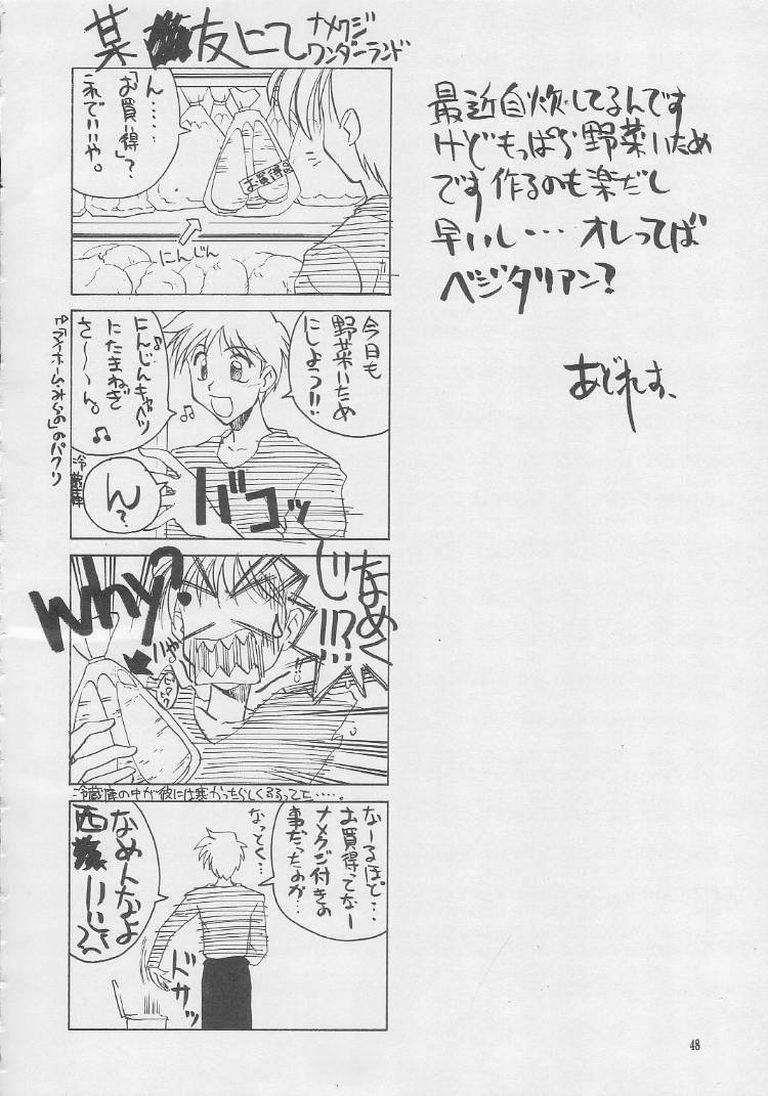 某友にて
ナメクジ
ワンダーランド
ん……
「お買い得」?
これでいいや。
お買得品
にんじん
今日も
野菜いため
にしよう!!
にんじんキャベツ
にたまねぎ
さ〜〜ん。
冷蔵庫
ん?
バコッ
↑「マイホームみらの」のパクリ
なめく
じ!!?
Why?
冷蔵庫の中が彼には寒かったらしくまるまってた……。
なーるほど…
お買得ってなー
ナメクジ付きの
事だったのか…
なっとく…
なめんなよ
西
ドサッ
最近自炊してるんです
けどもっぱら野菜いため
です作るのも楽だし
早いし…オレってば
ベジタリアン?
あどれす、
48